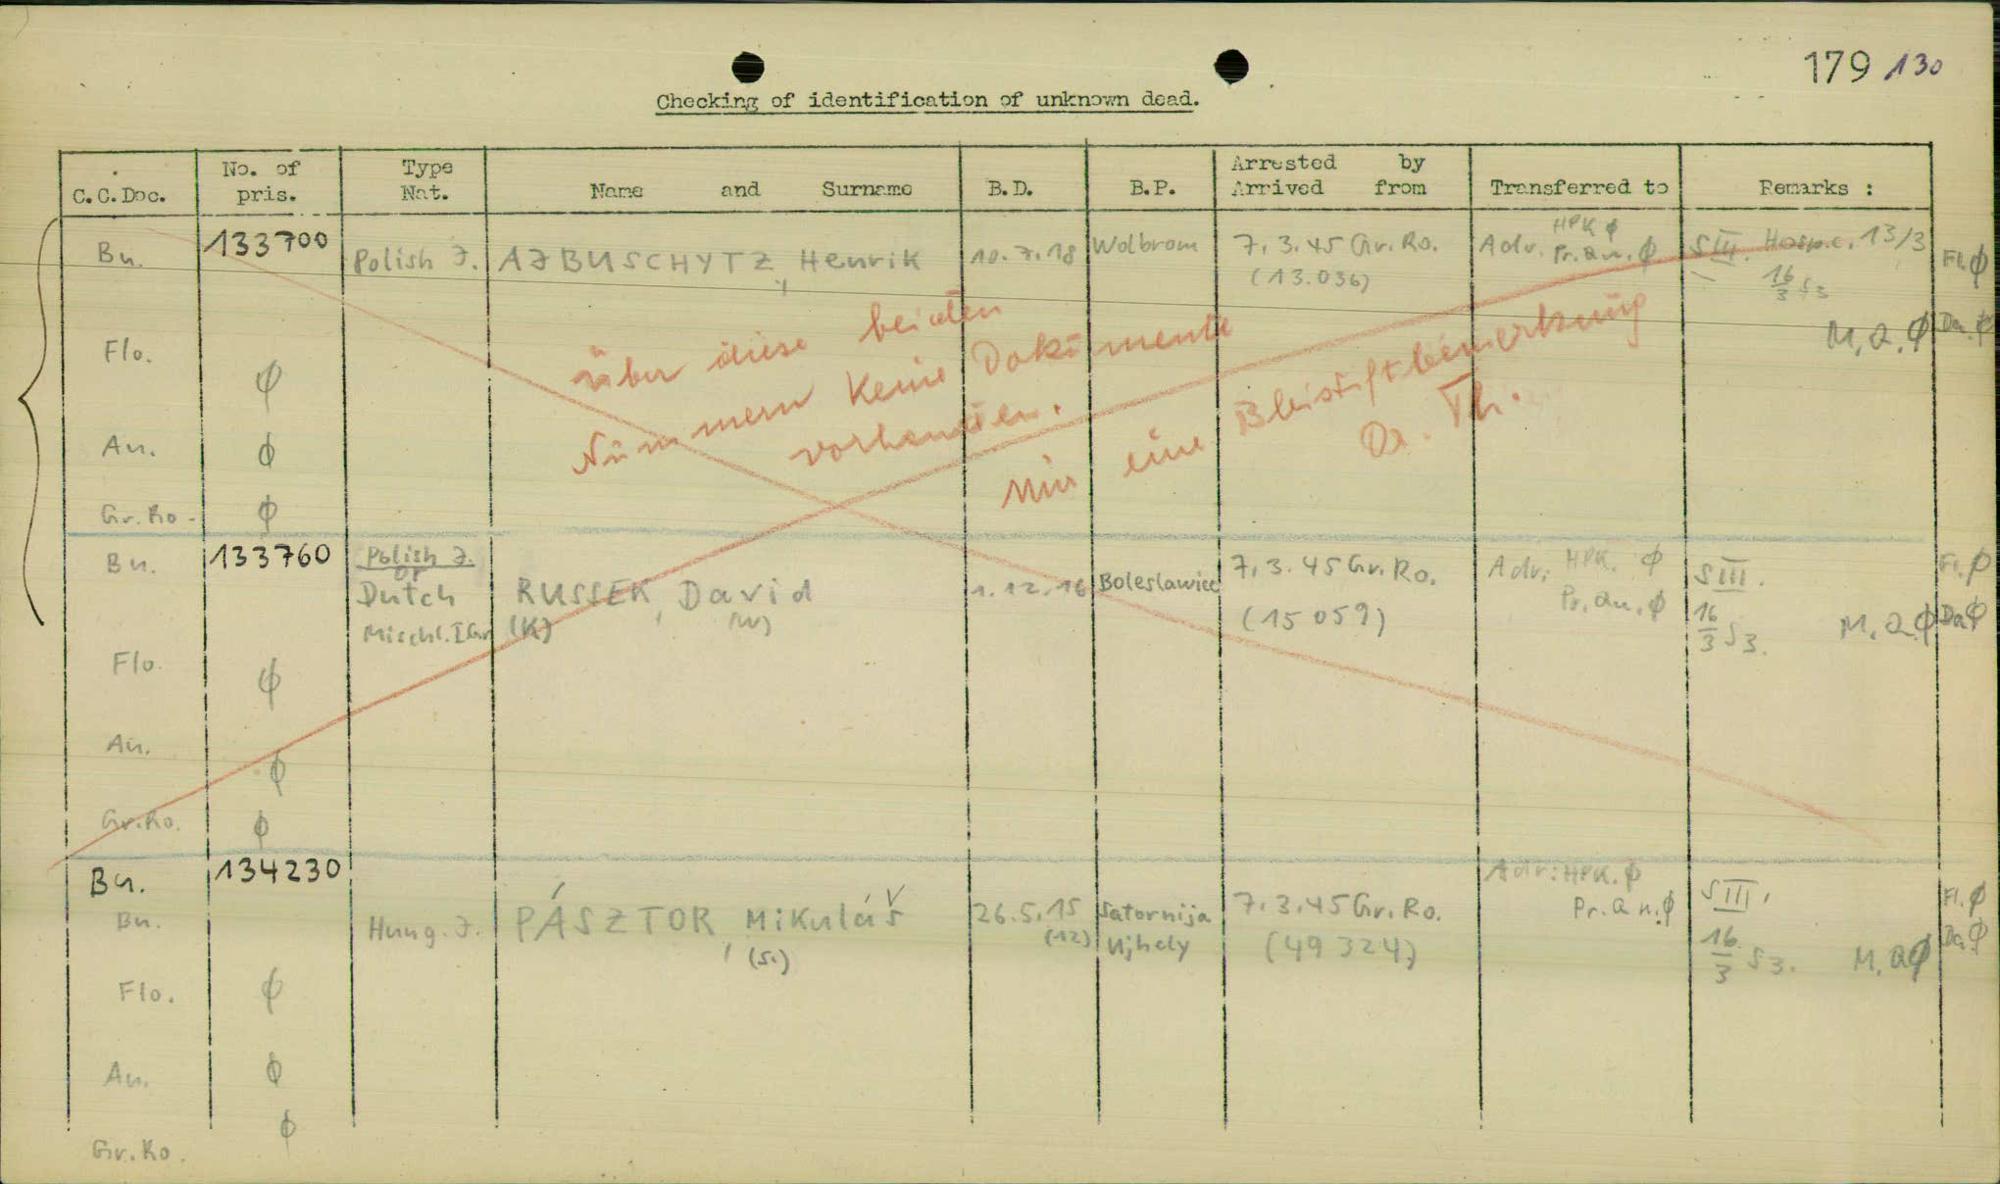 179 130
Checking of identification of unknown dead.
C.C.Doc. No. of pris. Type Nat. Name and Surname B.D. B.P. Arrested by Arrived from Transferred to Remarks :
Bu. 133700 Polish J. AJBUSCHYTZ, Henrik 10.7.18 Wolbrom 7.3.45 Gr.Ro. Adr. HPK ϕ SIII. Hosp.c. 13/3 Fl.ϕ
(13.036) Pr.au.ϕ 16/3 S3
M.a.ϕ Da.ϕ
über diese beiden
Nummern keine Dokumente
vorhanden.
Nur eine Bleistiftbemerkung
Dr. Th.
Flo. ϕ
Au. ϕ
Gr.Ro- ϕ
Bu. 133760 Polish J. 7.3.45 Gr.Ro. Adr: HPK. ϕ SIII. Fl.ϕ
or
Dutch RUSSEK, David 1.12.16 Boleslawiec (15059) Pr.au.ϕ 16/3 S3. M.a.ϕ Da.ϕ
Mischl.I Gr. (K) (W)
Flo. ϕ
Au. ϕ
Gr.Ro. ϕ
Bu. 134230 Adr: HPK. ϕ SIII. Fl.ϕ
Bu. Hung.J. PÁSZTOR, Mikuláš 26.5.15 Satornija 7.3.45 Gr.Ro. Pr.au.ϕ
(S.) (12) Ujhely (49324) 16/3 S3. M.a.ϕ Da.ϕ
Flo. ϕ
Au. ϕ
Gr.Ro. ϕ